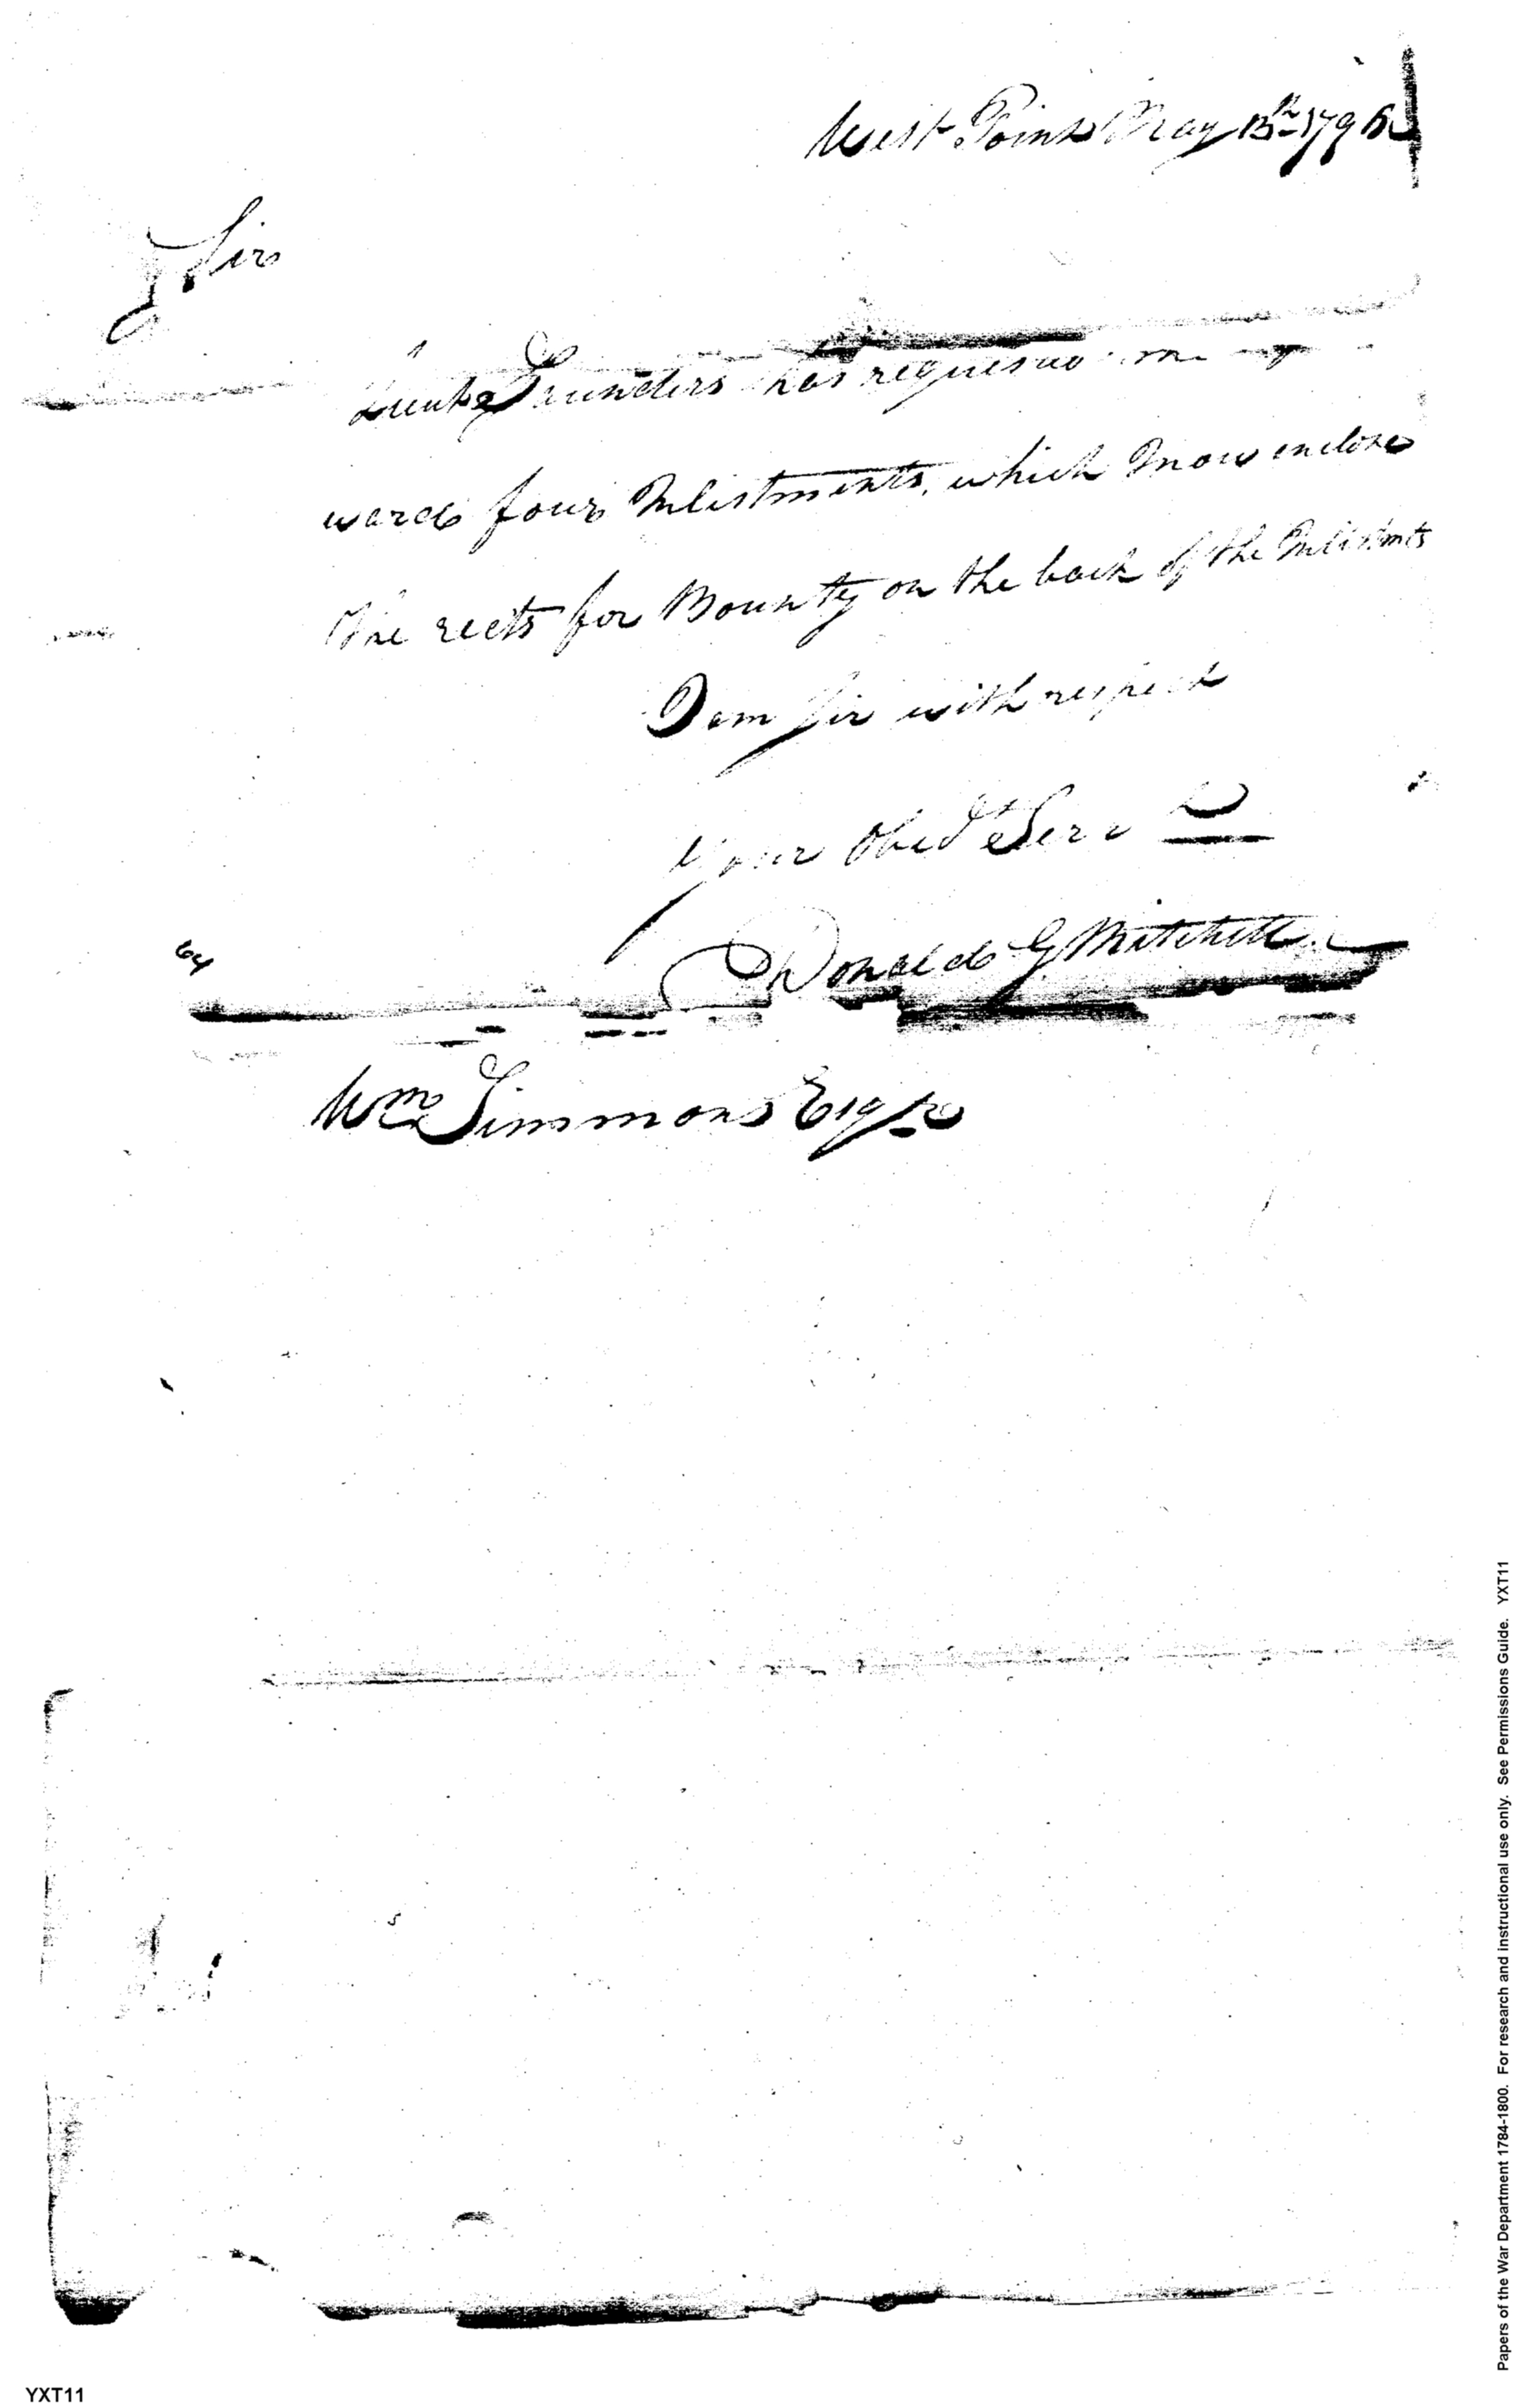 West Point May 13th 1796
Sir
Lieut Saunders has requested me
ward four Inlistments, which I now enclose
The rects for Bounty on the back of the Inlistmts
I am Sir with respect
Your Obedt Serv
Donald G Mitchell
64
Wm Simmons Esqr
Papers of the War Department 1784-1800. For research and instructional use only. See Permissions Guide. YXT11
YXT11